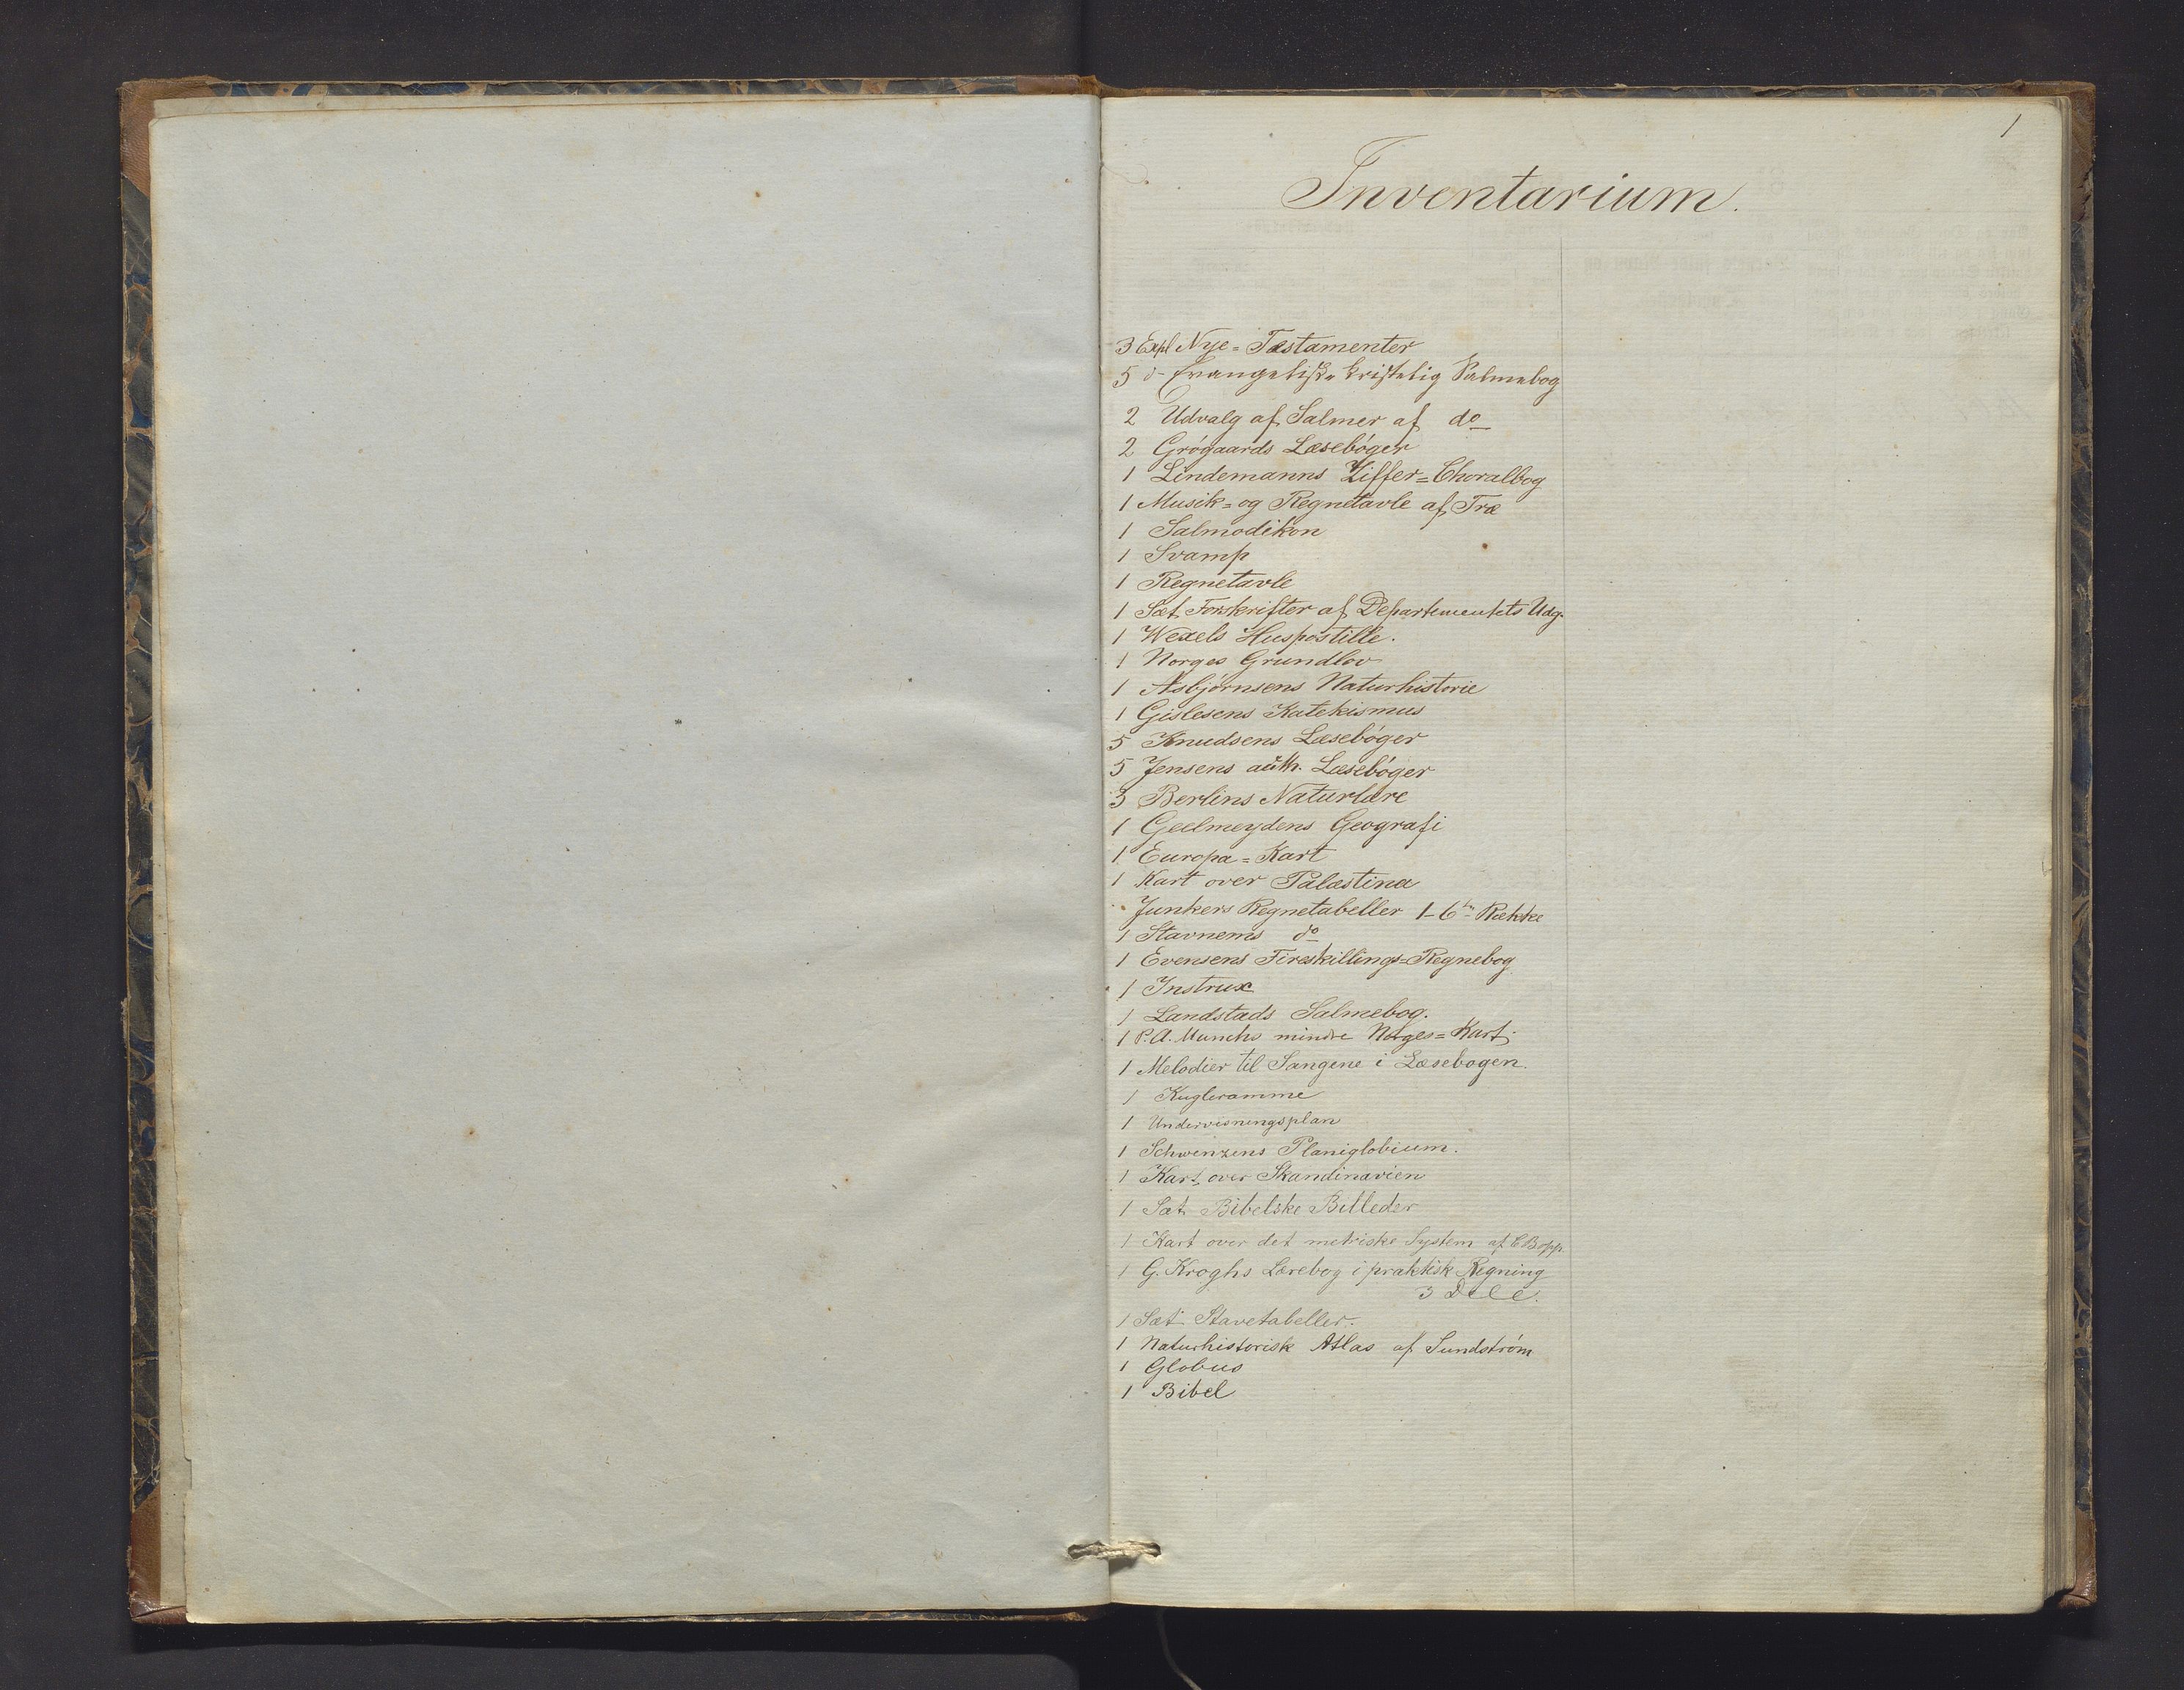 1
Inventarium.
3 Expl Nye=Testamenter
5 d- Evangelisk=kristelig Salmebog
2 Udvalg af Salmer af do
2 Grøgaards Læsebøger
1 Lindemanns Ziffer=Choralbog
1 Musik=og Regnetavle af Træ
1 Salmodikon
1 Svamp
1 Regnetavle
1 Sæt Forskrifter af Departementets Udg.
1 Wexels Huspostille.
1 Norges Grundlov
1 Asbjørnsens Naturhistorie
1 Gislesens Katekismus
5 Knudsens Læsebøger
5 Jensens auth. Læsebøger
3 Berlins Naturlære
1 Geelmeydens Geografi
1 Europa=Kart
1 Kart over Palæstina
Junkers Regnetabeller 1-6te Række
1 Stavnems do
1 Evensens Fireskillings=Regnebog
1 Instrux
1 Landstads Salmebog.
1 P. A. Munchs mindre Norges=Kart.
1 Melodier til Sangene i Læsebogen.
1 Kugleramme
1 Undervisningsplan
1 Schwenzens Planiglobium.
1 Kart over Skandinavien
1 Sæt Bibelske Billeder
1 Kart over det metriske System af C Bopp.
1 G. Kroghs Lærebog i praktisk Regning
3 Dele.
1 Sæt Stavetabeller.
1 Naturhistorisk Atlas af Sundstrøm
1 Globus
1 Bibel